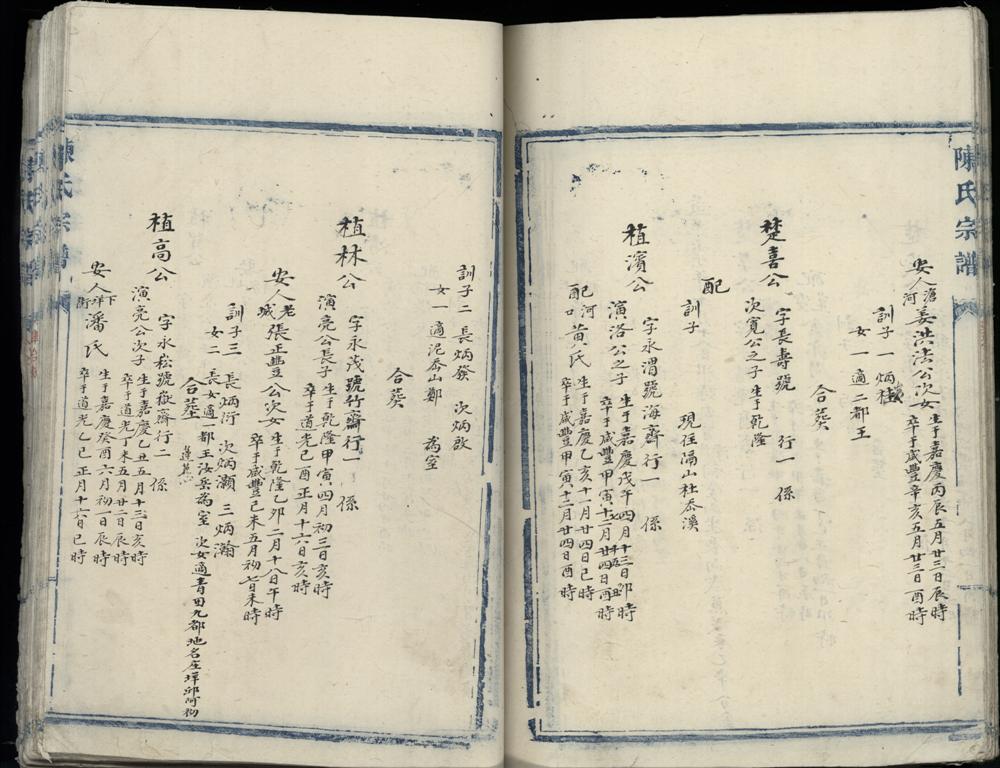 陳氏宗譜
安人滄河姜洪法公次女生于嘉慶丙辰五月廿三日辰時
卒于咸豐辛亥五月廿三日酉時
訓子一炳
女一適二都王
合葬
楚喜公
字長壽號 行一 係
次寬公之子生于乾隆
配
訓子 現住隔山杜岙溪
植濱公
字永渭號海齋行一 係
演洛公之子生于嘉慶戊午四月十三日卯時
卒于咸豐甲寅十二月廿四日酉時
配河口黃氏生于嘉慶乙亥十月廿四日己時
卒于咸豐甲寅十二月廿四日酉時
訓子二 長炳發 次炳啟
女一適泥岙山鄭 為室
合葬
植林公
字永茂號竹齋行一 係
演亮公長子生于乾隆甲寅四月初三日亥時
卒于道光己酉正月十六日亥時
安人老城張正豐公次女生于乾隆乙卯二月十八日午時
卒于咸豐己未五月初七日未時
訓子三 長炳河 次炳灝 三炳瀚
女二 長女適一都王汝岳為室 次女適青田九都地名座垟邱阿
合塟
植高公
字永松號嶽齋行二 係
演亮公次子生于嘉慶乙丑五月十三日亥時
卒于道光丁未五月廿二日辰時
安人下垟街潘氏生于嘉慶癸酉六月初一日辰時
卒于道光乙巳正月十六日巳時
陳氏宗譜